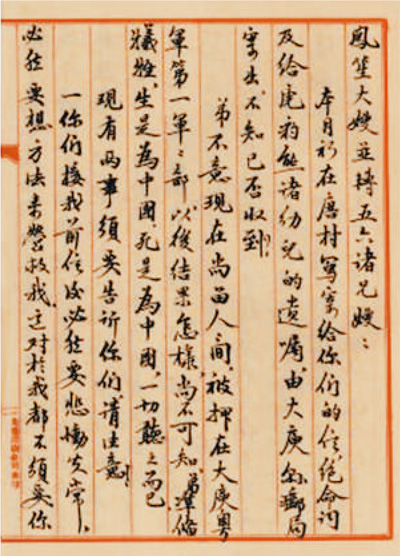 鳳笙大嫂並轉五六諸兄嫂：
本月初在唐村寫寄給你們的信、絕命詞
及給虎豹熊諸幼兒的遺囑、由大庾縣郵局
寄出、不知已否收到？
弟不意現在尚留人間、被押在大庾粤
軍第一軍々部、以後結果怎樣、尚不可知、弟準備
犧牲、生是為中國、死是為中國、一切聽之而已
現有两事須要告訴你們、請注意！
一你們接我前信後必然要悲慟失常、
必然要想方法來營救我、這對於我都不須要你